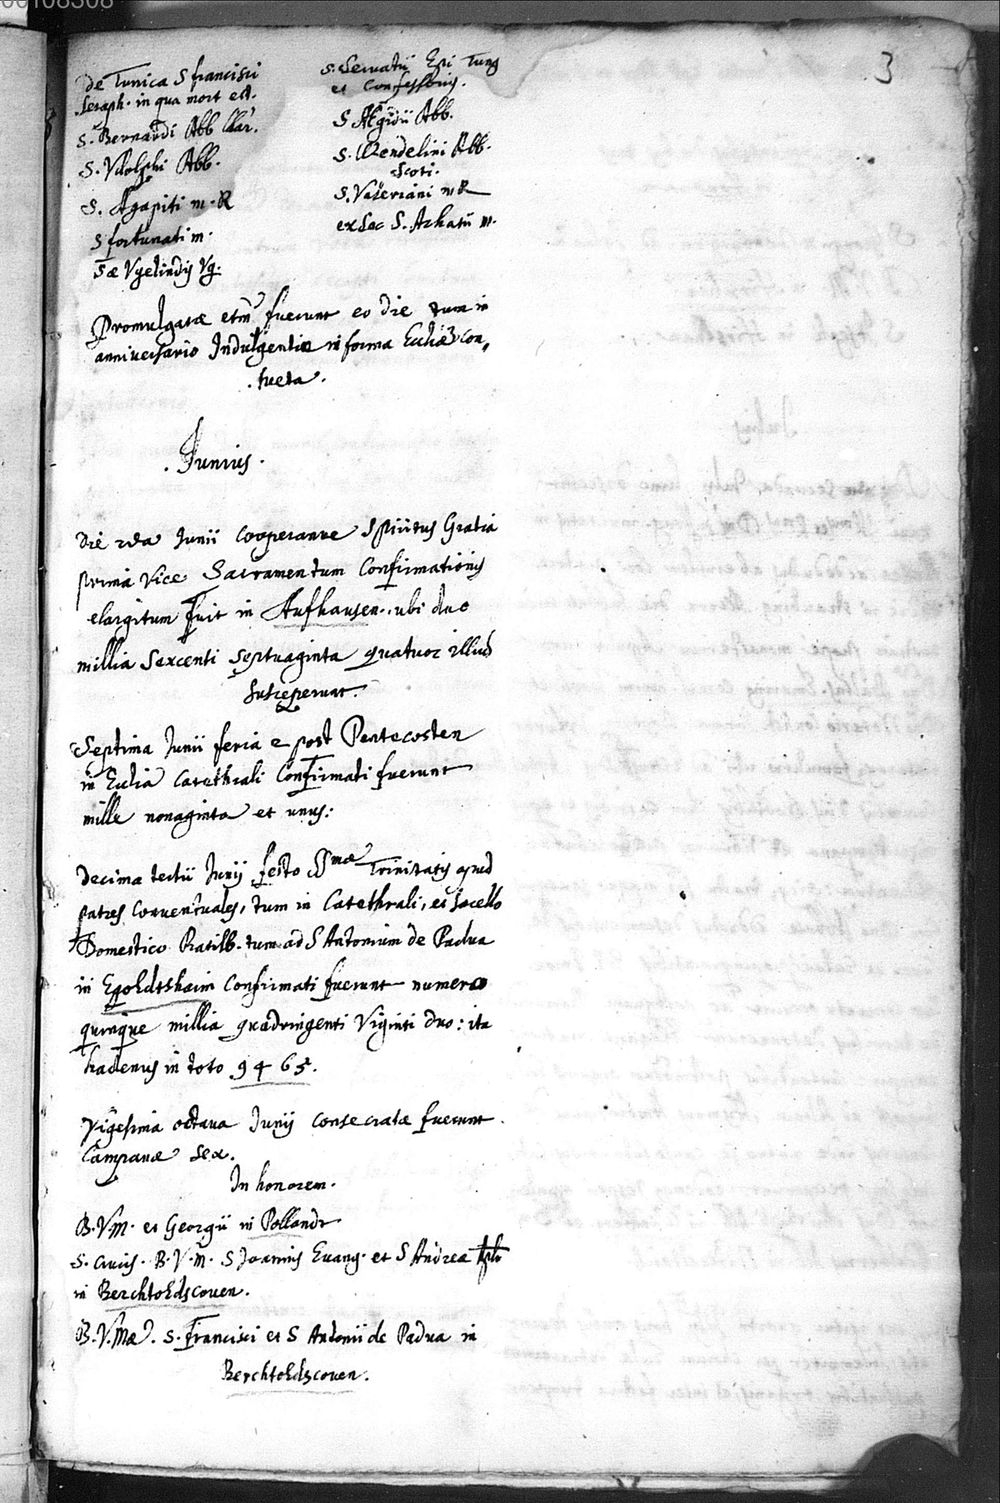 00108308
3
De Tunica S francisci
Seraph. in qua mort est.
S. Bernardi Abb Clar.
S. Udolphi Abb.
S. Agapiti m. R
S fortunati m.
Sæ Vgelindis Vg.
S. Servatii Epi Tung
et Confessoris.
S Ægidii Abb.
S. Wendelini Abb.
Scoti.
S. Valeriani m R
ex Soc S. Achatii m.
Promulgatæ etm fuerunt eo die tum in
anniversario Indulgentiæ in forma Eccliæ con„
sueta.
Junius.
Die 2da Junii cooperante Spiritus Gratia
prima vice Sacramentum Confirmationis
elargitum fuit in Aufhausen. ubi duo
millia Sexcenti Septuaginta quatuor illud
susceperunt.
Septima Junii feria 2 post Pentecosten
in Ecclia Catethrali Confirmati fuerunt
mille nonaginta et unus:
Decima tertii Junij festo SSmæ Trinitatis apud
patres Conventuales, tum in Catethrali, et Sacello
Domestico Ratisb. tum ad S Antonium de Padua
in Egoldtshaim Confirmati fuerunt numero
quinque millia quadringenti Viginti duo: ita
hactenus in toto 9465.
Vigesima octava Junij consecratæ fuerunt
Campanæ sex.
In honorem.
B.V.M. et Georgii in Pollandt
S. crucis. B.V.M. S Joannis Evang. et S Andrea Apli
in Berchtoldscoven.
B.V.Mæ. S. Francisci et S Antonii de Padua in
Berchtoldscoven.